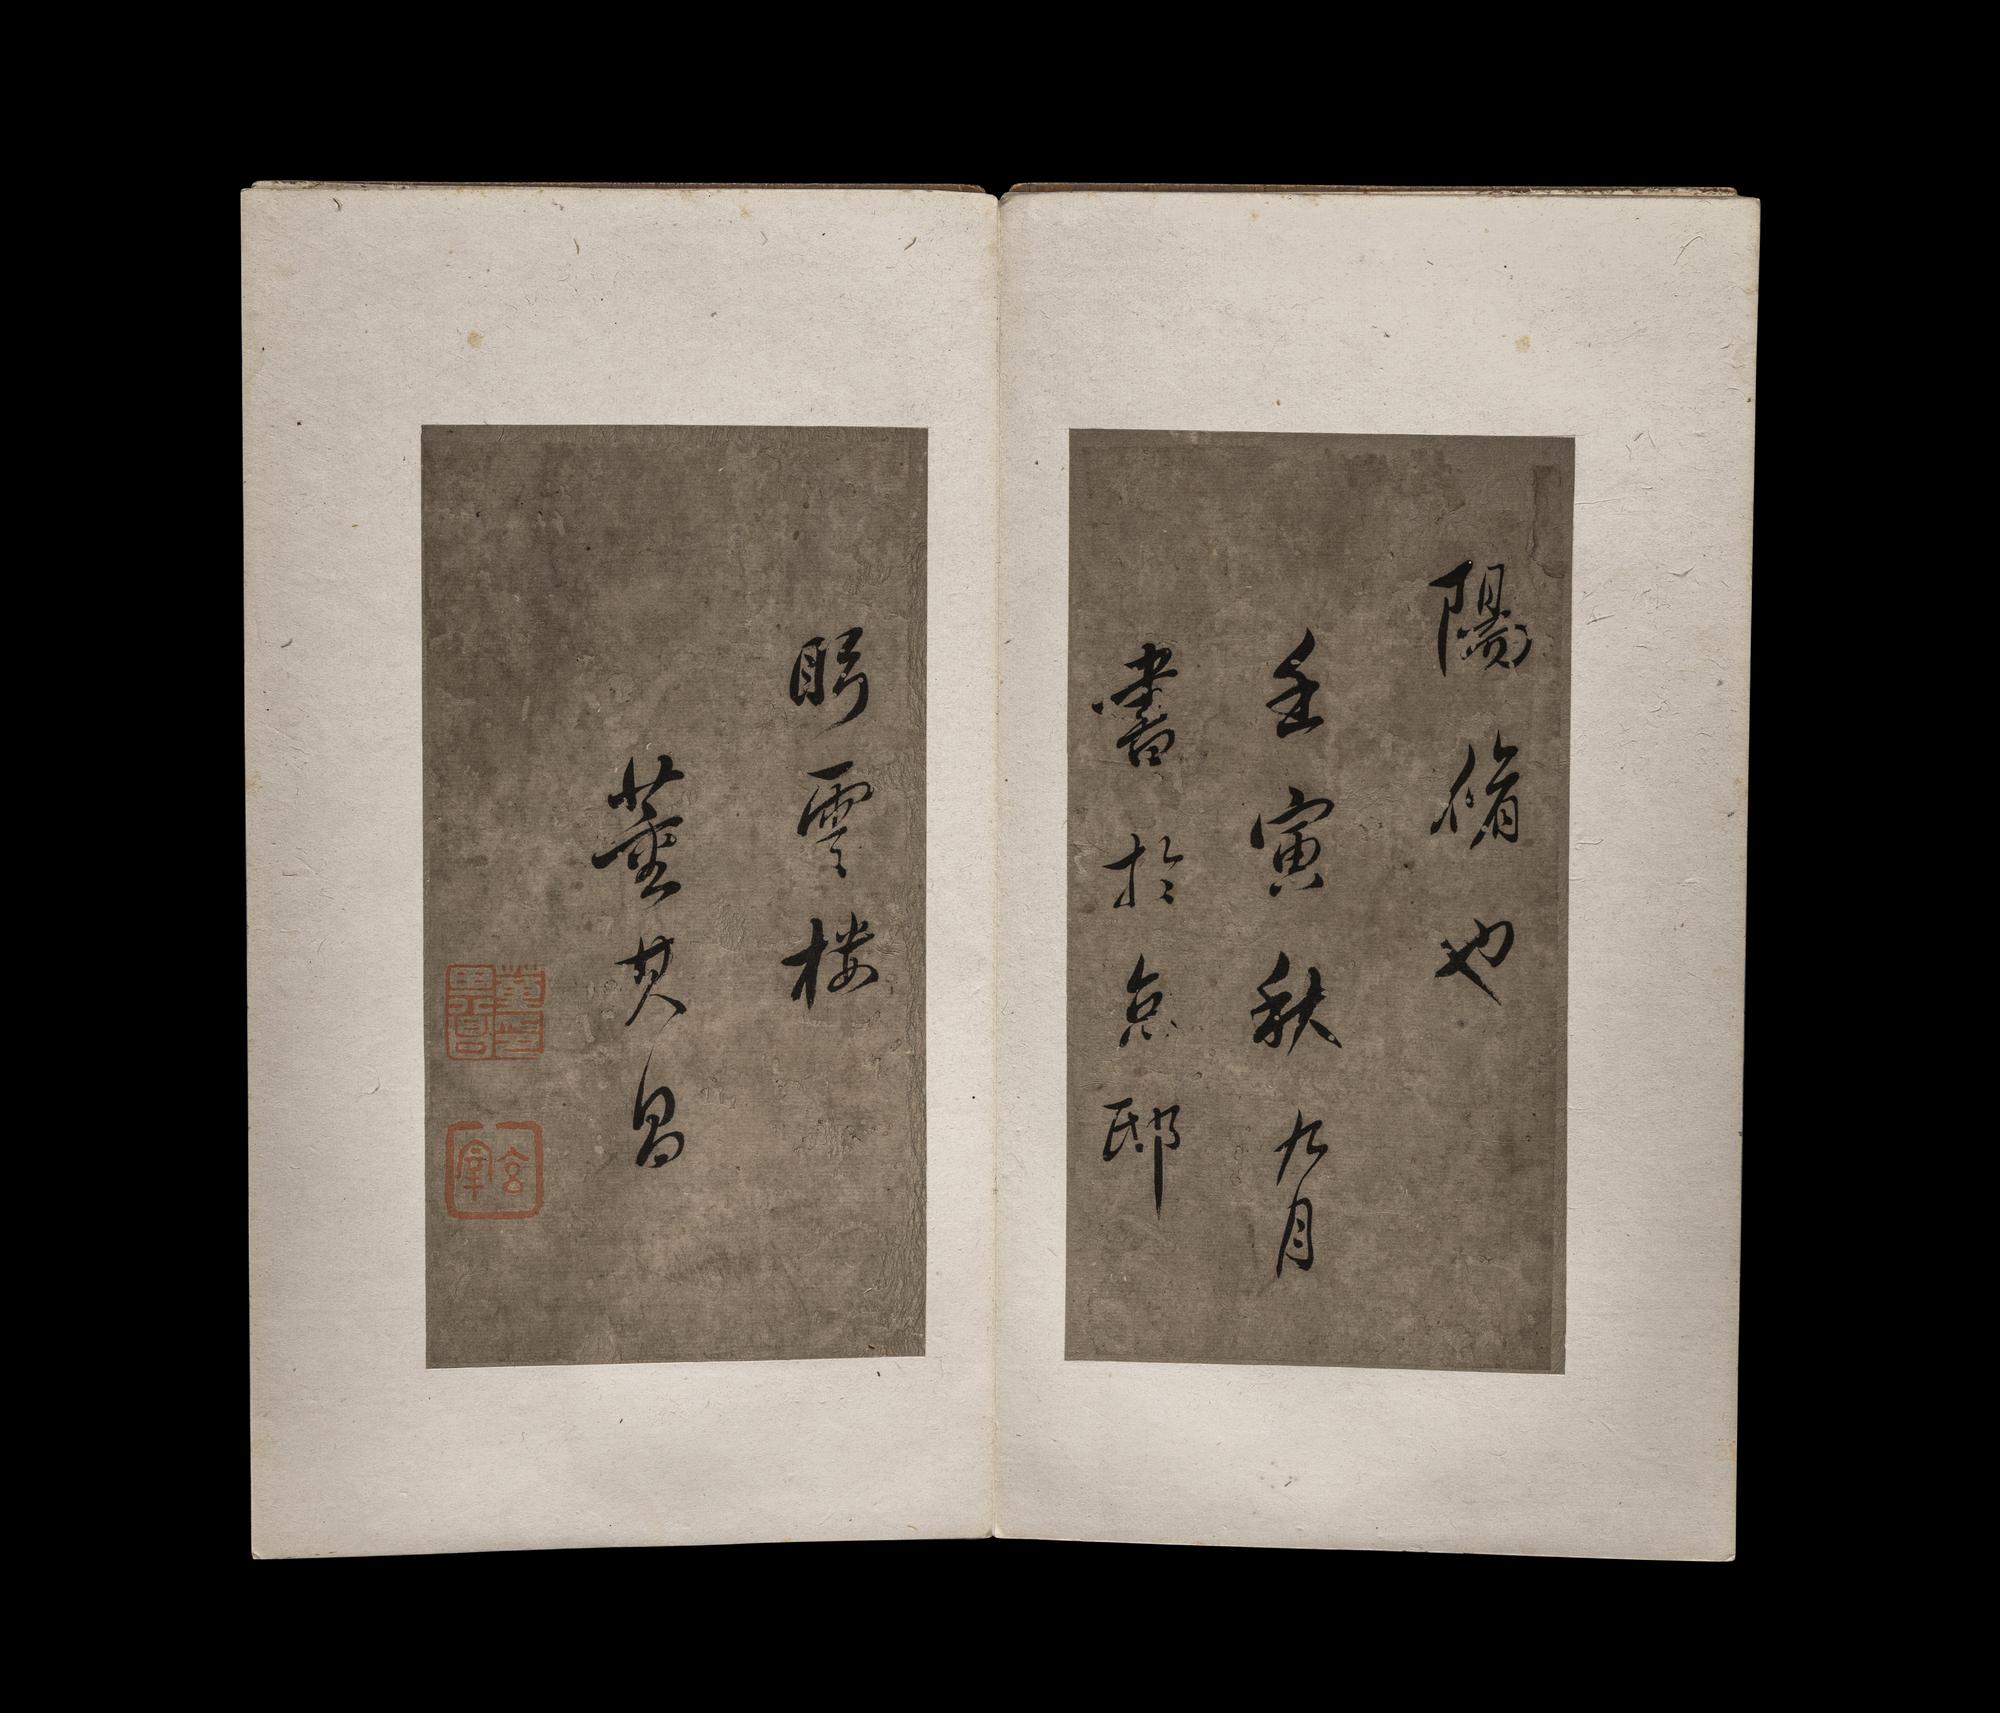 陽脩也
壬寅秋九月
書於京邸
眄雲樓
董其昌
董其昌印
玄宰